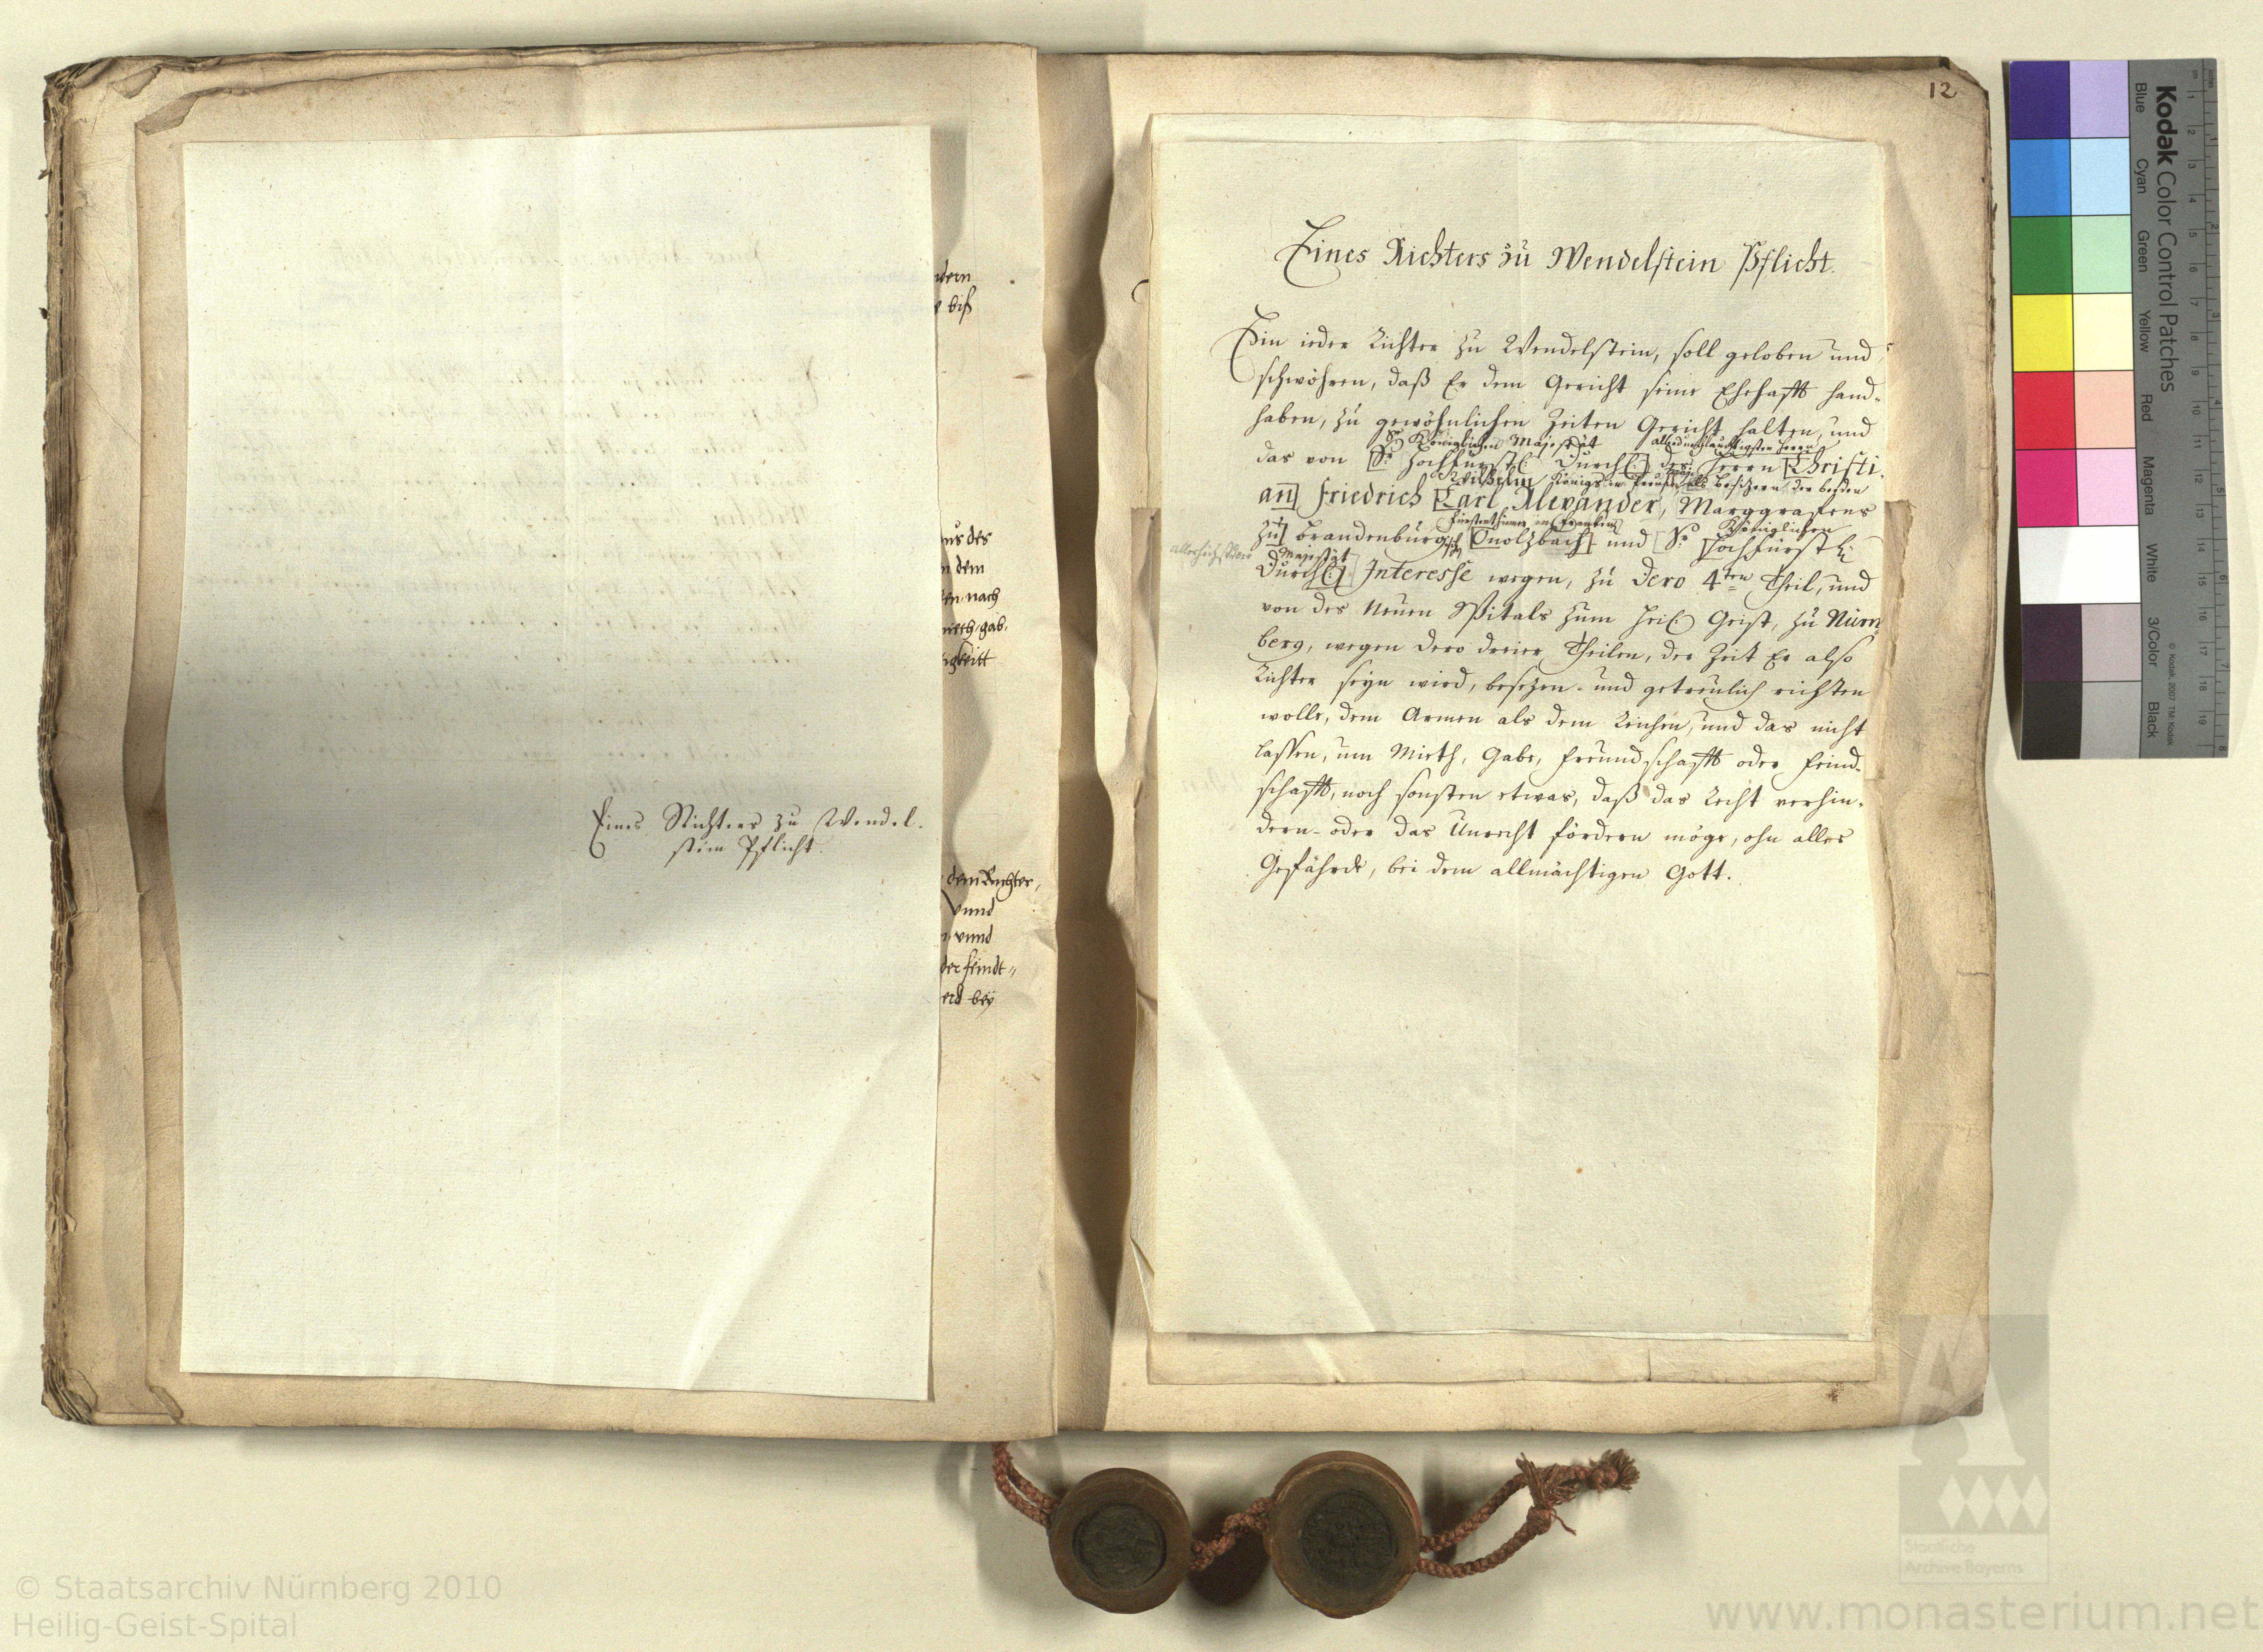 Eines Richters zu Wendel-
stein Pflicht.
dern
biß
aus des
dem
nach
mieth, gab,
dem Richter,
Vnnd
vnnd
der feindt„
bey
12
Eines Richters zu Wendelstein Pflicht.
Ein ieder Richter zu Wendelstein, soll geloben und
schwöhren, daß Er dem Gericht seine Ehehafft hand-
haben, zu gewöhnlichen Zeiten Gericht halten, und
Sr Königlichen Majestät allerdurchlauchtigsten Herrn
das von [Sr. Hochfürstl. Durchl.] des Herrn [Christi-
Wilhelm Königs in Preußen als Besitzern der beeden
an] Friedrich [Carl Alexander, Marggrafens
Fürstenthümer in Franken Königlichen
zu] Brandenburg [Onolzbach] und [Sr. Hochfürstl.
Majestät
Durchl.] Interesse wegen, zu Dero 4ten Theil, und
von des Neuen Spitals zum Heil. Geist, zu Nürn-
berg, wegen dero dreier Theilen, der Zeit Er also
Richter seyn wird, besezen- und getreulich richten
wolle, dem Armen als dem Reichen, und das nicht
lassen, um Mieth, Gabe, Freundschafft oder Feind-
schafft, noch sonsten etwas, daß das Recht verhin-
dern- oder das Unrecht fördern möge, ohn alles
Gefährde, bei dem allmächtigen Gott.
Kodak Color Control Patches
Blue Cyan Green Yellow Red Magenta White 3/Color Black
© Kodak, 2007 TM: Kodak
Staatliche
Archive Bayerns
© Staatsarchiv Nürnberg 2010
Heilig-Geist-Spital
www.monasterium.net